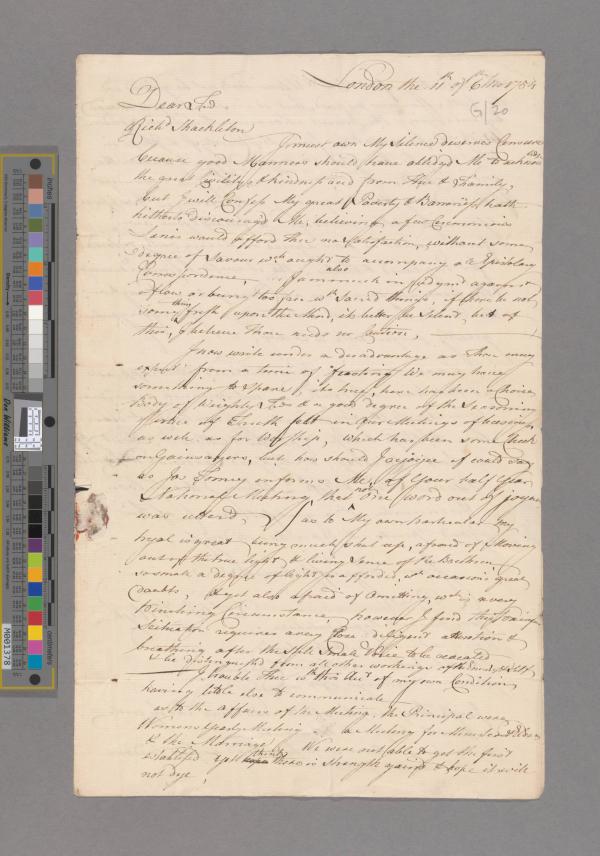 London the 11th of 6th Mo 1754
G/20
Dear Fd
Richd Shackleton
I must own My Silence deserves Censure
because good Manners should have obliged Me to acknow
the great Civility & kindness recd from Thee & Family,
but I will Confess My great Poverty & Barrenness hath
hitherto discouraged Me, believing a few Ceremonious
Lines would afford thee no Satisfaction, without some
degree of Savour wch ought to accompany our Epistolary
Correspondence, I am much in judgmt against
also
a flow or being too free wth Sacred things, if there be not
something fresh upon the Mind, its better be Silent, but of
this, I believe Thou needs no Caution,
I now write under a disadvantage as Thou may
expect from a time of feasting We may have
something to Spare, its true, here has been a Choice
Body of Weighty Fds & a good degree of the Seasoning
Virtue of Truth felt in our Meetings of business
as well as for Worship, which has been some Check
on Gainsayers, but how should I rejoice if could say
as Jos informs Me, of Your half Year
National Meeting that not one word out of joynt
was utterd, as to My own particular My
tryal is great being much shut up, afraid of Moving
out of the true light & living Sense of the Brethren,
so small a degree of light is afforded, wch occasions great
doubts, & yet also afraid of Omitting, wch is a very
Pinching Circumstance, however I find this
Scituation requires a very close diligent attention &
breathing after the still Small Voice to be
& be distinguished from all other workings of the mind, & Self
I trouble Thee wth this Acct of my own Condition
having little else to communicate
as to the affairs of the Meeting, the Principal were
Womens Yearly Meeting a Meeting for Minrs & Elders
& the Marriage We were not able to get the first
establish'd yett thinks there is Strength gain'd & hope it will
not dye,
inches
centimeters
Don Williams
M001378